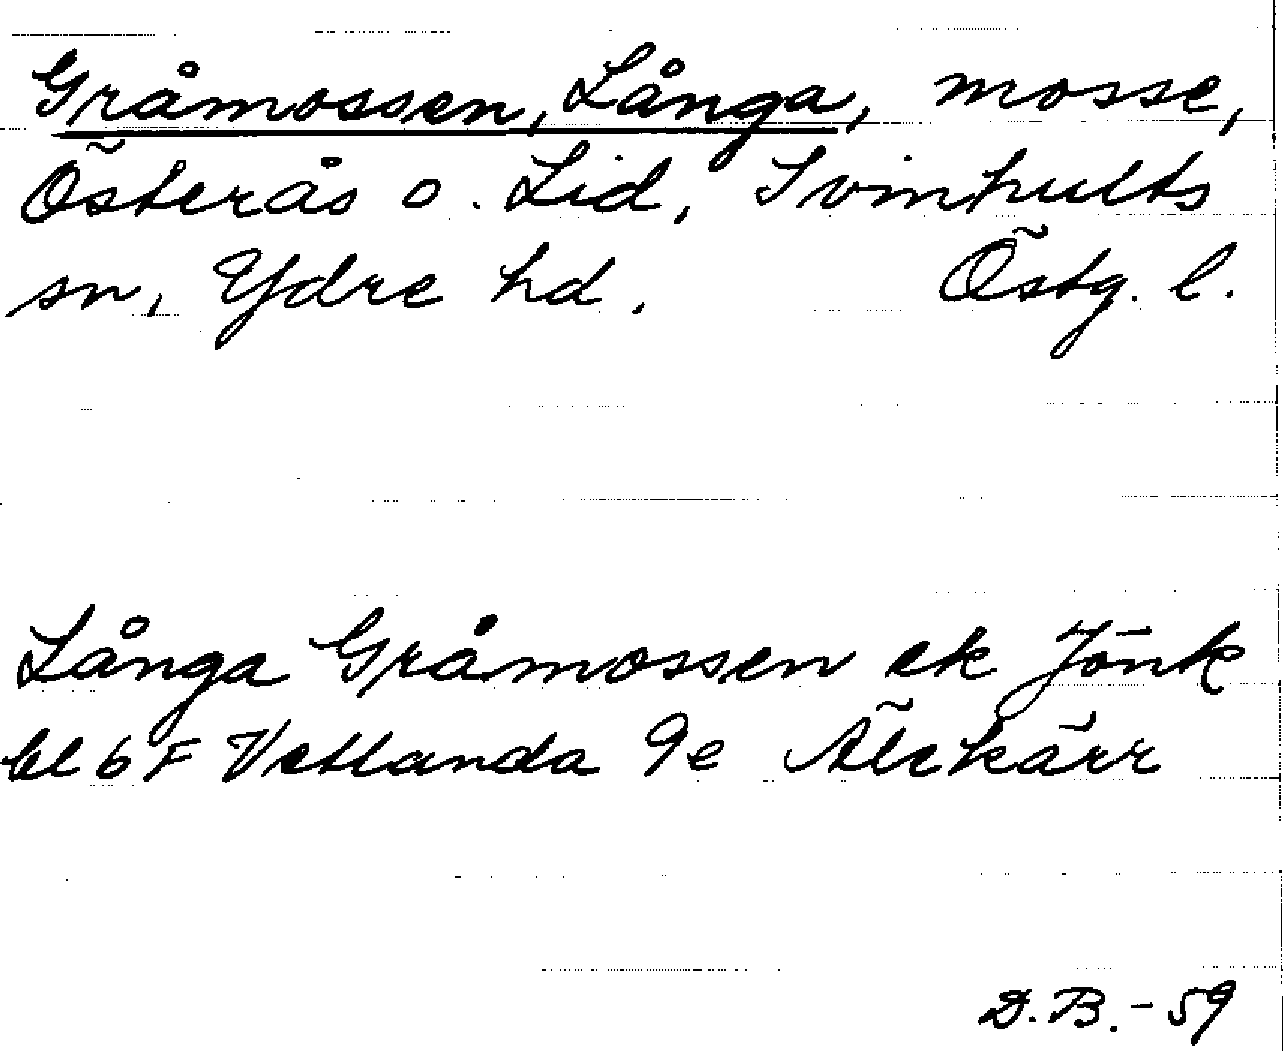 Gråmossen, Långa, mosse,
Österås o. Lid, Svinhults
sn, Ydre hd. Östg. l.
Långa Gråmossen ek Jönk
bl 6 F Vetlanda 9e Älekärr
D.B. - 59